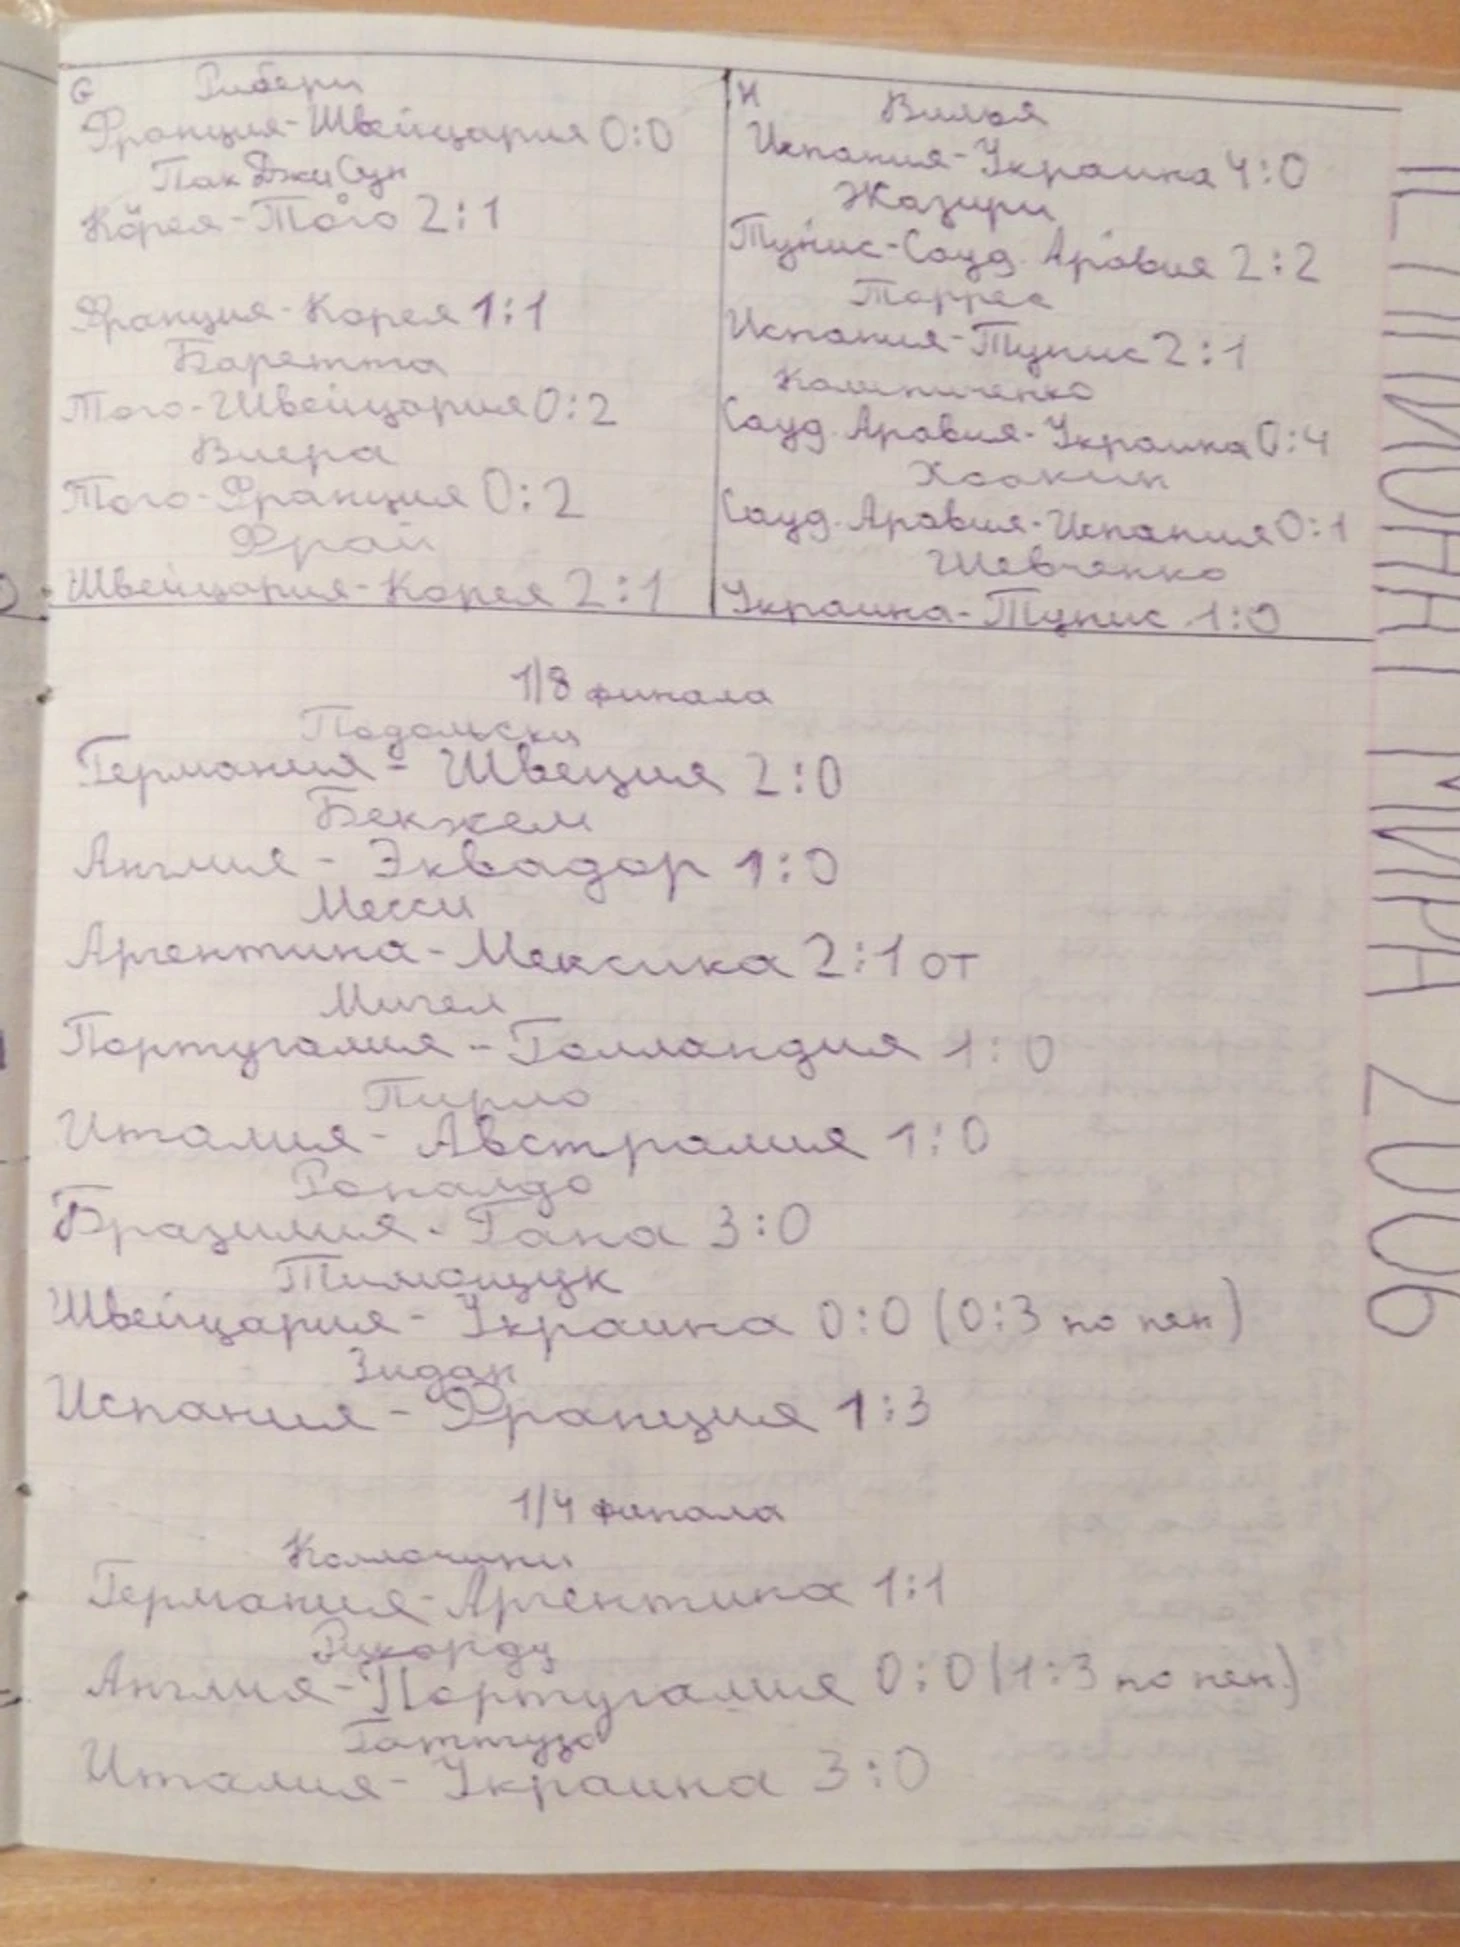 G
Рибери
Франция-Швейцария 0:0
Пак Джи Сун
Корея-Того 2:1
Франция-Корея 1:1
Баретта
Того-Швейцария 0:2
Виера
Того-Франция 0:2
Фрай
Швейцария-Корея 2:1
H
Вилья
Испания-Украина 4:0
Жазири
Тунис-Сауд. Аравия 2:2
Торрес
Испания-Тунис 2:1
Калиниченко
Сауд. Аравия-Украина 0:4
Хоакин
Сауд. Аравия-Испания 0:1
Шевченко
Украина-Тунис 1:0
1/8 финала
Подольски
Германия - Швеция 2:0
Бекхем
Англия - Эквадор 1:0
Месси
Аргентина-Мексика 2:1 от
Мигел
Португалия - Голландия 1:0
Пирло
Италия - Австралия 1:0
Роналдо
Бразилия - Гана 3:0
Тимощук
Швейцария - Украина 0:0 (0:3 по пен)
Зидан
Испания - Франция 1:3
1/4 финала
Колочини
Германия-Аргентина 1:1
Рикарду
Англия-Португалия 0:0 (1:3 по пен.)
Гаттузо
Италия - Украина 3:0
ЧЕМПИОНАТ МИРА 2006